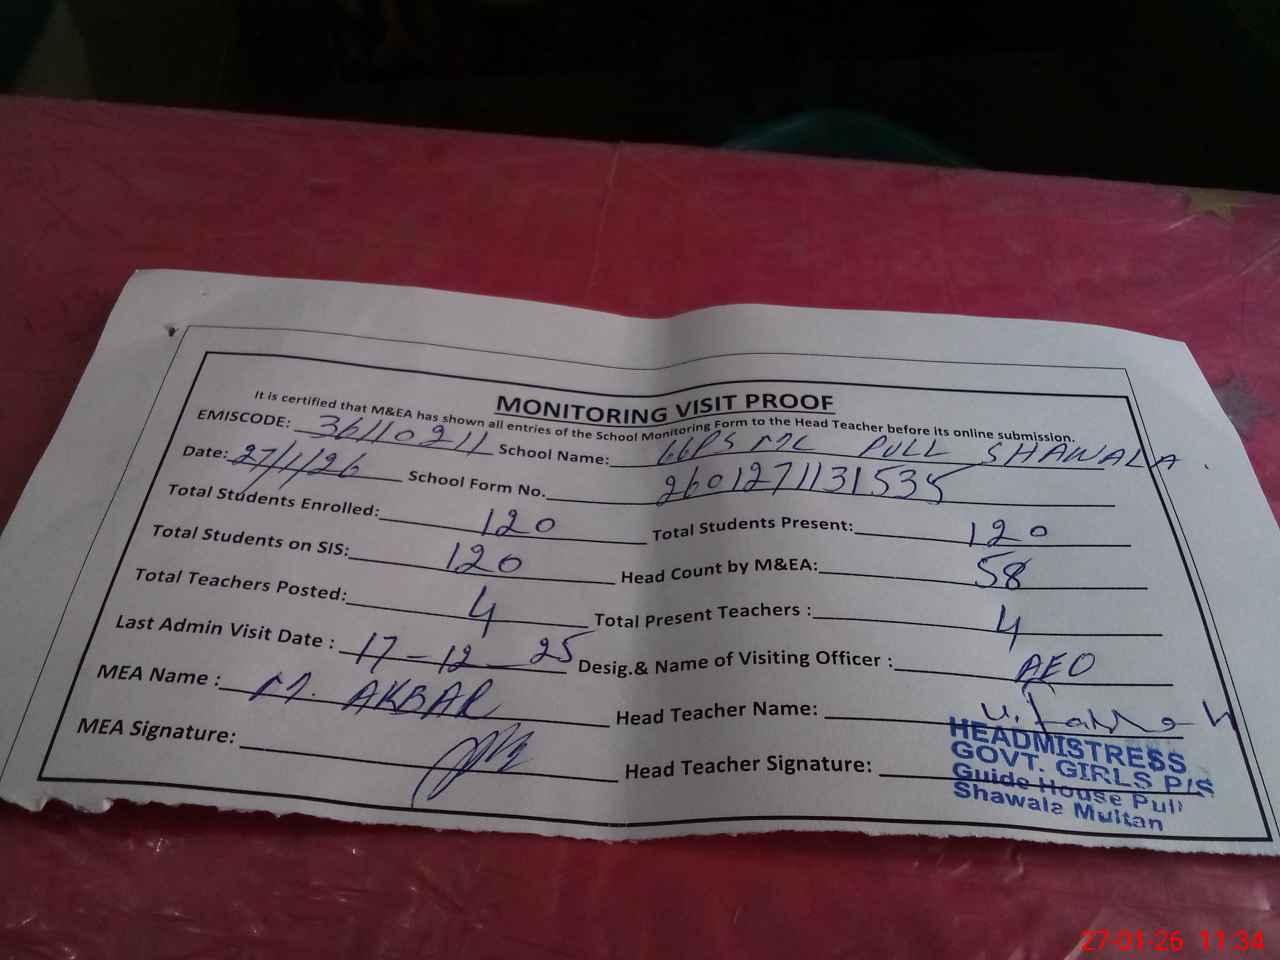 MONITORING VISIT PROOF
It is certified that M&EA has shown all entries of the School Monitoring Form to the Head Teacher before its online submission.
EMISCODE: 36110211 School Name: GGPS MC PULL SHAWALA.
Date: 27/1/26 School Form No. 2601271131535
Total Students Enrolled: 120 Total Students Present: 120
Total Students on SIS: 120 Head Count by M&EA: 58
Total Teachers Posted: 4 Total Present Teachers : 4
Last Admin Visit Date : 17-12-25 Desig.& Name of Visiting Officer : AEO
MEA Name : M. AKBAR Head Teacher Name:
MEA Signature: Head Teacher Signature:
HEADMISTRESS
GOVT. GIRLS P/S
Guide House Pull
Shawala Multan
27-01-26 11:34